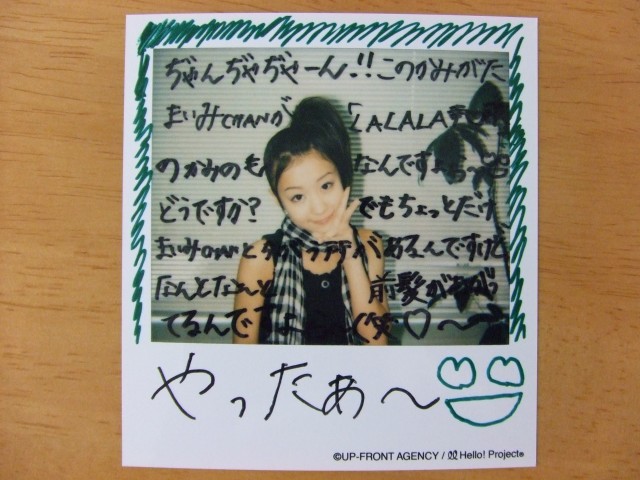 ぢゃんぢゃぢゃーん!!このかみがた
まいみCHANが「LALALA
のかみのも なんですよぉ〜
どうですか? でもちょっとだけ
まいみCHANとちがうテンがあるんですけど
なんとなーんと 前髪がちがっ
てるんですよ (笑♡〜
やったぁ〜
©UP-FRONT AGENCY / Hello! Project®